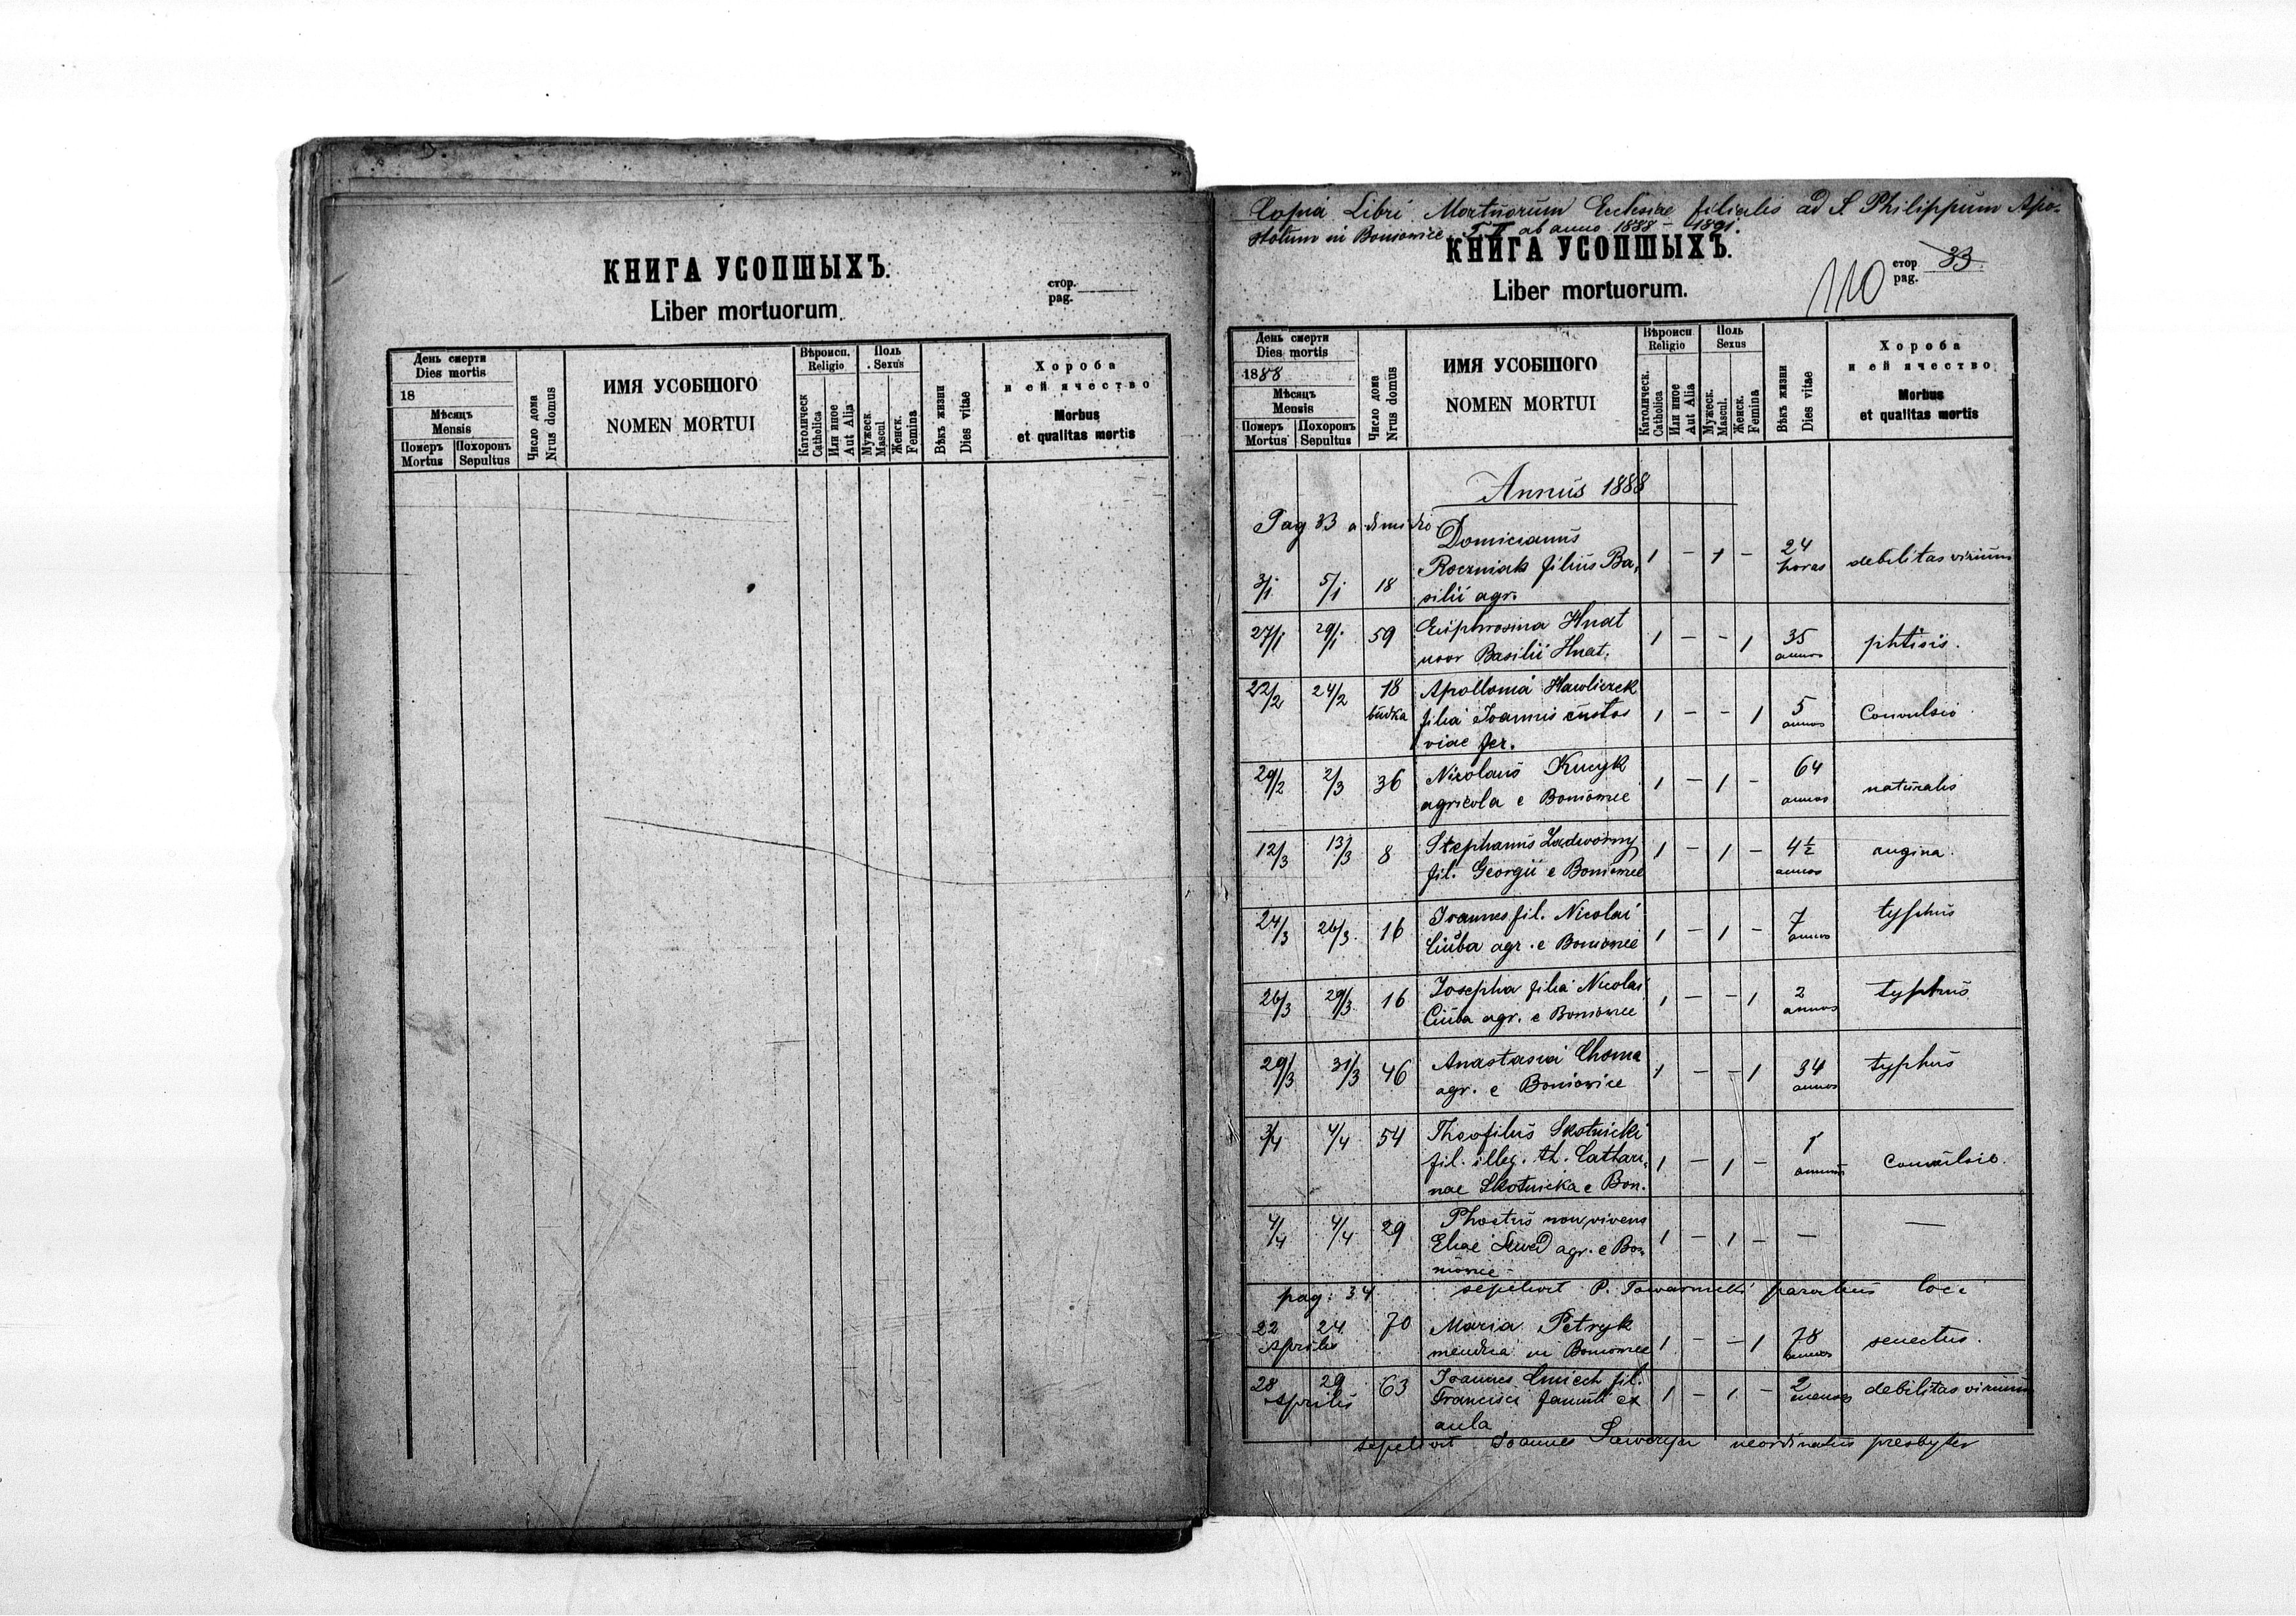 КНИГА УСОПШЫХЪ.
Liber mortuorum.
стор.
pag.
День смерти
Dies mortis
18
Мѣсяцъ
Mensis
Померъ
Mortus
Похоронъ
Sepultus
Число дома
Nrus domus
ИМЯ УСОБШОГО
NOMEN MORTUI
Вѣроисп.
Religio
Католическ
Catholica
Или иное
Aut Alia
Поль
Sexus
Мужеск
Mascul
Женск.
Femina
Вѣкъ жизни
Dies vitae
Хороба
и ей ячество
Morbus
et qualitas mortis
Copia Libri Mortuorum Ecclesiae filialis ad S. Philippum Apo-
stolum in Boniowice T. II ab anno 1888 - 1891.
КНИГА УСОПШЫХЪ.
Liber mortuorum.
110
стор
pag.
33
День смерти
Dies mortis
1888
Мѣсяцъ
Mensis
Померъ
Mortus
Похоронъ
Sepultus
Число дома
Nrus domus
ИМЯ УСОБШОГО
NOMEN MORTUI
Вѣроисп
Religio
Католическ.
Catholica
Или иное
Aut Alia
Поль
Sexus
Мужеск.
Mascul.
Женск.
Femina
Вѣкъ жизни
Dies vitae
Хороба
и ей ячество
Morbus
et qualitas mortis
Annus 1888
Pag 33 a dimidio
Domicianus
Roczniak filius Ba-
silii agr.
3/1 5/1 18 1 - 1 - 24 horas debilitas virium
27/1 29/1 59 Euphrosina Hnat 1 - - 1 35 annos phtisis.
uxor Basilii Hnat.
22/2 24/2 18 budka Apollonia Hawliczek
filia Joannis custos 1 - - 1 5 annos Convulsio
viae fer.
29/2 2/3 36 Nicolaus Kucyk 1 - 1 - 64 annos naturalis
agricola e Boniowice
12/3 13/3 8 Stephanus Zadworny 1 - 1 - 4½ annos angina.
fil. Georgii e Boniowice
24/3 26/3 16 Joannes fil. Nicolai 1 - 1 - 7 annos typhus
Ciuba agr. e Boniowice
26/3 29/3 16 Josepha filia Nicolai 1 - - 1 2 annos typhus
Ciuba agr. e Boniowice
29/3 31/3 46 Anastasia Choma 1 - - 1 34 annos typhus
agr. e Boniowice
3/4 4/4 54 Theofilus Skotnicki
fil. illeg. th. Cathari- 1 - 1 - 1 annum convulsio.
nae Skotnicka e Bon.
4/4 4/4 29 Phoetus non vivens
Eliae agr. e Bo- 1 - 1 - — —
niowice
pag: 34 sepelivit P. Tawarnicki parochus loci
22 24 70 Maria Petryk
Aprilis mendica in Boniowice 1 - - 1 78 annos senectus.
28 29 63 Joannes fil.
Aprilis Francisci famuli ex 1 - 1 - 2 menses debilitas virium
aula
sepelivit Joannes neordinatus presbyter